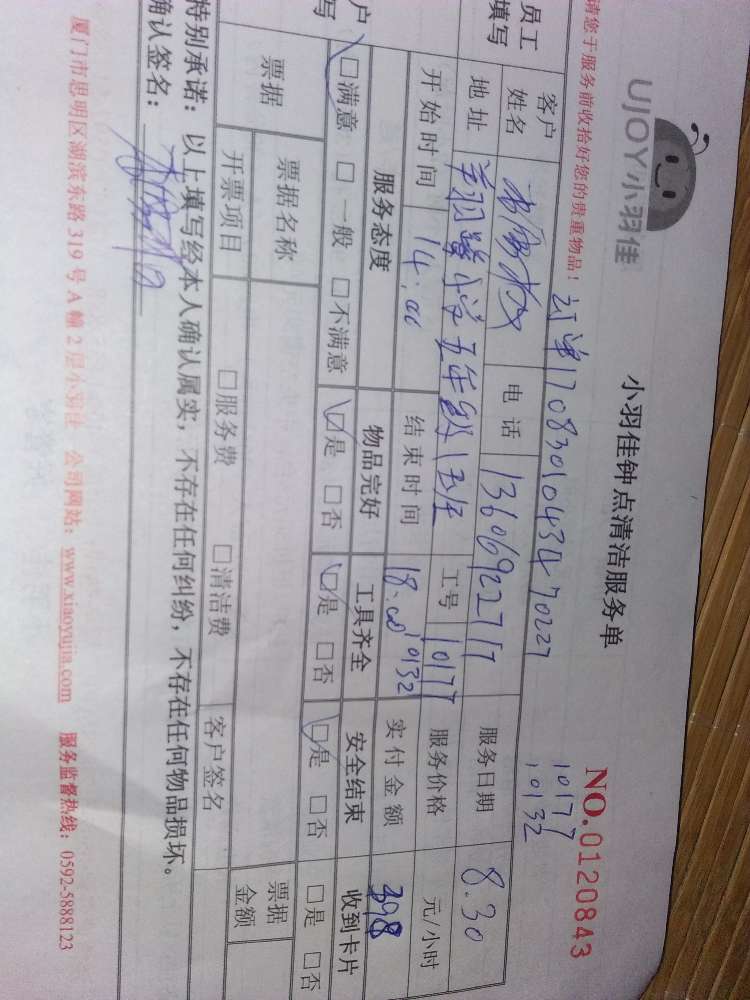 UJOY小羽佳
小羽佳钟点清洁服务单
NO.0120843
请您于服务前收拾好您的贵重物品！
订单1708301043470227
10177
10132
员工填写
客户姓名
电话 13606922717
服务日期 8.30
地址
工号 10177
10132
服务价格 元/小时
开始时间 14:00
结束时间 18:00
实付金额 398
户
写
服务态度 物品完好 工具齐全 安全结束 收到卡片
□满意 □一般 □不满意 □是 □否 □是 □否 □是 □否 □是 □否
票据
票据名称
开票项目
□服务费 □清洁费
客户签名
票据金额
特别承诺：以上填写经本人确认属实，不存在任何纠纷，不存在任何物品损坏。
确认签名：
厦门市思明区湖滨东路319号A幢2层小羽佳 公司网站：www.xiaoyujia.com 服务监督热线：0592-5888123